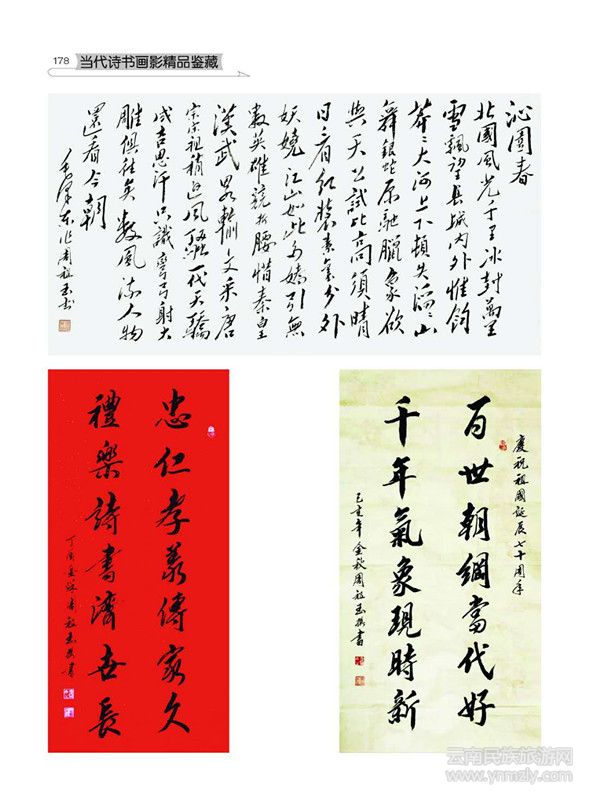 178
当代诗书画影精品鉴藏
沁園春
北國風光千里冰封萬里
雪飄望長城內外惟餘
莽〻大河上下頓失滔〻山
舞銀蛇原馳臘象欲
與天公試比高須晴
日看紅裝素裹分外
妖嬈江山如此多嬌引無
數英雄競折腰惜秦皇
漢武略輸文采唐
宗宋祖稍遜風騷一代天驕
成吉思汗只識彎弓射大
雕俱往矣數風流人物
還看今朝
毛澤東作周祖玉書
忠仁孝義傳家久
禮樂詩書濟世長
慶祝祖國誕辰七十周年
百世朝綱當代好
千年氣象現時新
己亥年金秋周祖玉撰書
云南民族旅游网
www.ynmzly.com